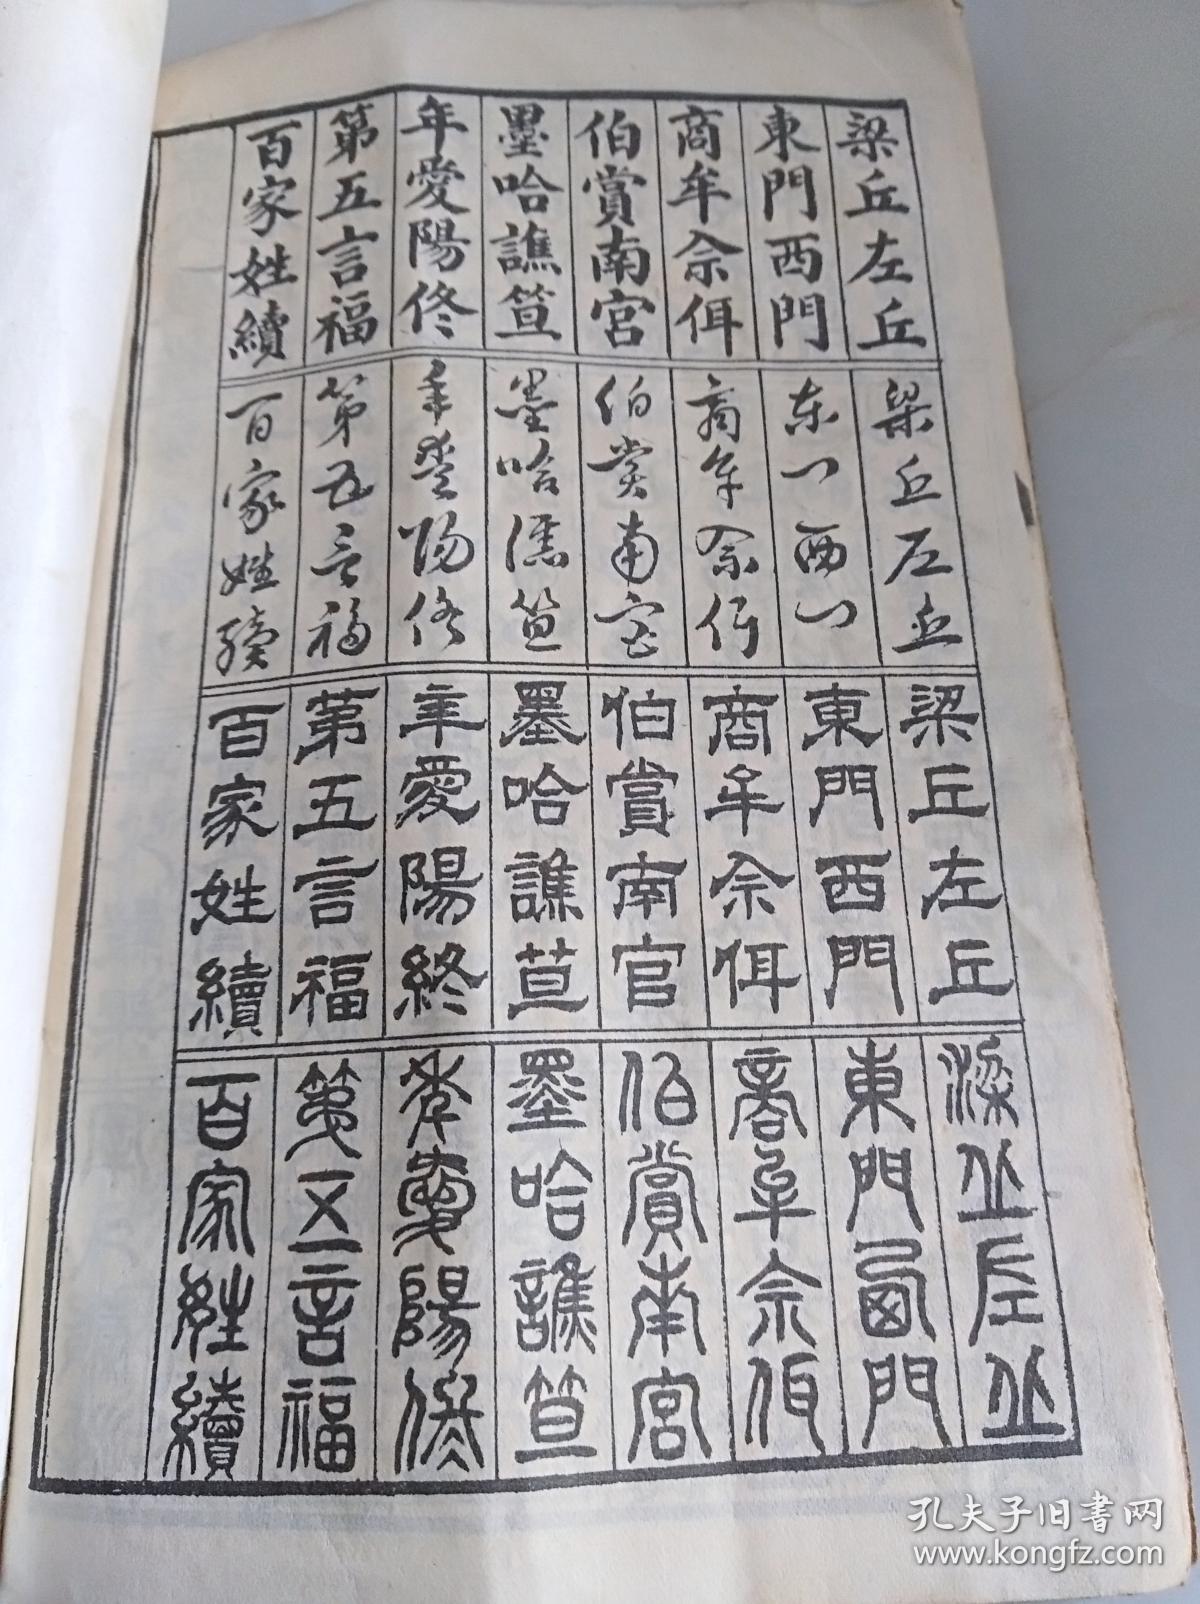 梁丘左丘
東門西門
商牟佘佴
伯賞南宮
墨哈譙笪
年愛陽佟
第五言福
百家姓續
梁丘左丘
東門西門
商牟佘佴
伯賞南宮
墨哈譙笪
年愛陽佟
第五言福
百家姓續
梁丘左丘
東門西門
商牟佘佴
伯賞南官
墨哈譙笪
年愛陽終
第五言福
百家姓續
梁丘左丘
東門西門
商牟佘佴
伯賞南宮
墨哈譙笪
年愛陽佟
第五言福
百家姓續
孔夫子旧书网
www.kongfz.com